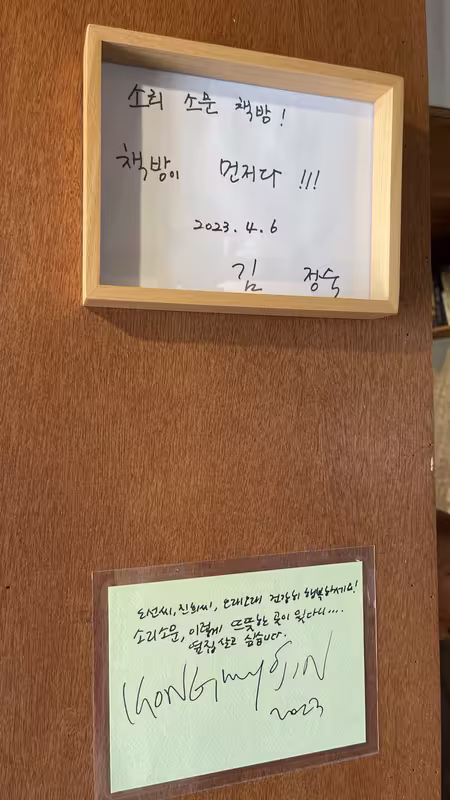 소리 소문 책방!
책방이 먼저다 !!!
2023. 4. 6
김 정숙
도선씨, 진희씨, 오래오래 건강히 행복하세요!
소리소문, 이렇게 뜨뜻한 곳이 있다니....
옆집 살고 싶습니다.
KONG myoJIN
2023